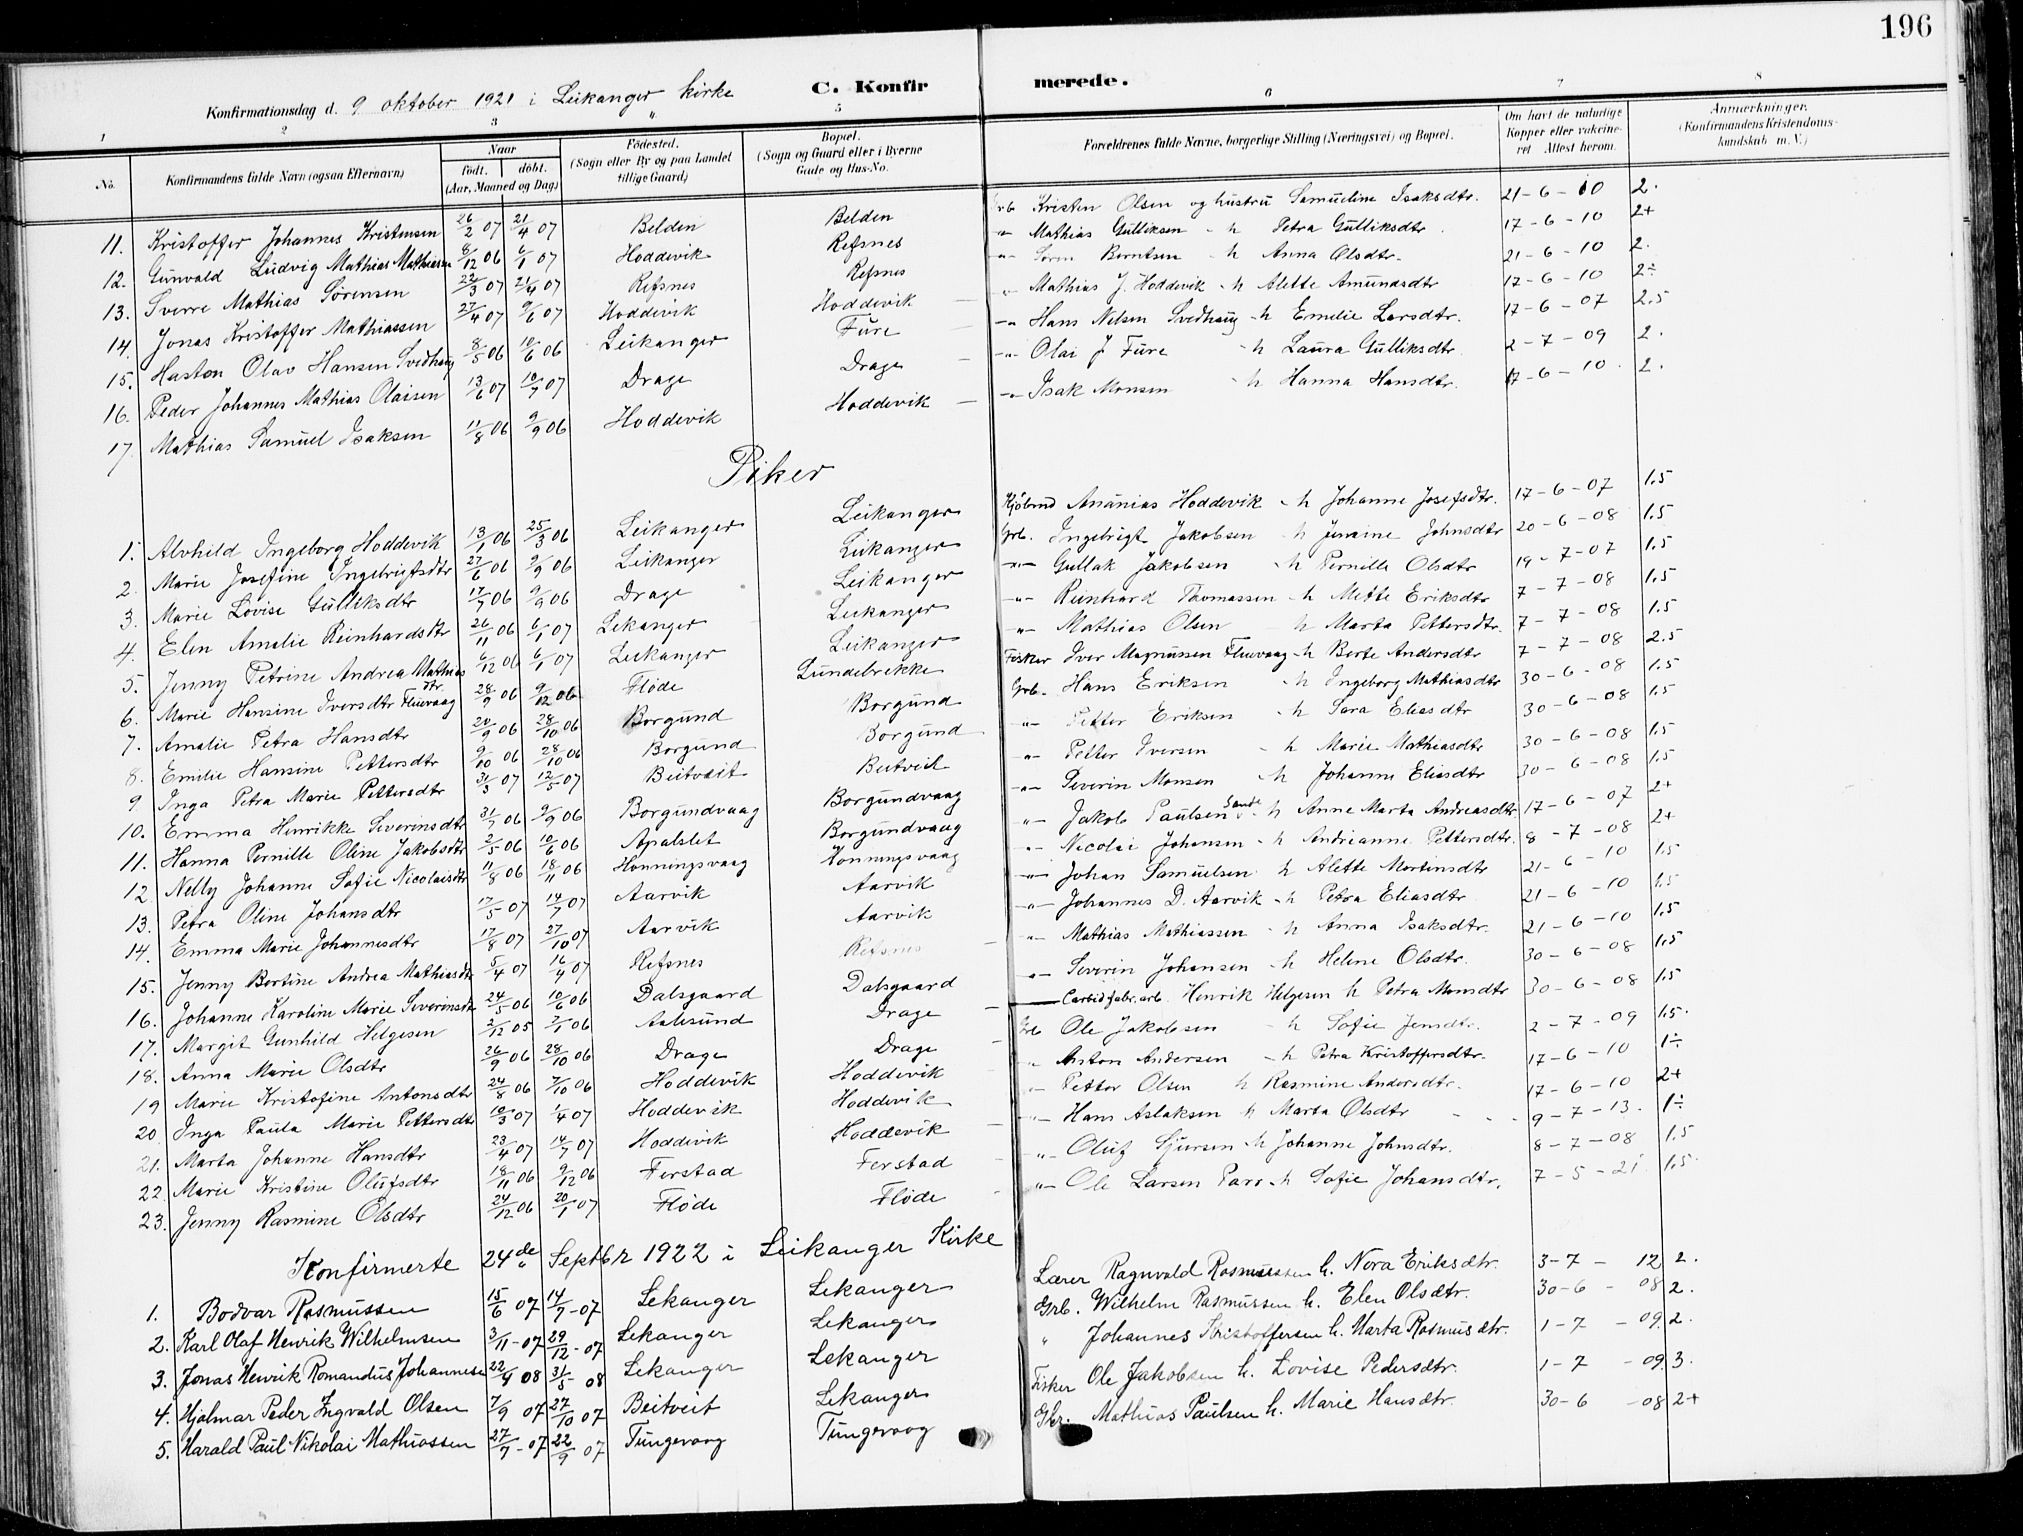 196
C. Konfirmerede.
Konfirmationsdag d. 9 oktober 1921 i Leikanger kirke
1 2 3 4 5 6 7 8
No. Konfirmandens fulde Navn (ogsaa Efternavn) Naar født. døbt. (Aar, Maaned og Dag) Fødested. (Sogn eller By og paa Landet tillige Gaard) Bopæl. (Sogn og Gaard eller i Byerne Gade og Hus-No. Forældrenes fulde Navne, borgerlige Stilling (Næringsvei) og Bopæl. Om havt de naturlige Kopper eller vakcineret Attest herom. Anmærkninger. (Konfirmandens Kristendomskundskab m. V.)
11. Kristoffer Johannes Kristensen 26/2 07 21/4 07 Belden Belden Grb Kristen Olsen og hustru Samueline Isaksdtr. 21-6-10 2.
12. Gunvald Ludvig Mathias Mathiassen 8/12 06 6/1 07 Hoddevik Refsnes " Mathias Gulliksen - h Petra Gulliksdtr. 17-6-10 2+
13. Sverre Mathias Sørensen 22/3 07 21/4 07 Refsnes Refsnes " Sørn Berntsen - h Anna Olsdtr. 21-6-10 2.
14. Jonas Kristoffer Mathiassen 27/4 07 9/6 07 Hoddevik Hoddevik " Mathias J. Hoddevik - h Alette Amundsdtr 17-6-10 2÷
15. Haston Olav Hansen Svedhaug 8/5 06 10/6 06 Leikanger Fure " Hans Nilsen Svedhaug - h Emelie Larsdtr. 17-6-07 2.5
16. Peder Johannes Mathias Olaisen 13/6 07 10/7 07 Drage Drage " Olai J Fure - h Laura Gulliksdtr 2-7-09 2.
17. Mathias Samuel Isaksen 11/8 06 9/9 06 Hoddevik Hoddevik " Isak Monsen - h Hanna Hansdtr. 17-6-10. 2.
Piker
1. Alvhild Ingeborg Hoddevik 13/1 06 25/3 06 Leikanger Leikanger Kjøbmd Ananias Hoddevik - h Johanne Josefsdtr. 17-6-07 1.5
2. Marie Josefine Ingebrigtsdtr 27/6 06 9/9 06 Leikanger Leikanger Grb. Ingebrigt Jakobsen - h Jensine Johnsdtr 20-6-08 1.5
3. Marie Lovise Gulliksdtr 17/7 06 9/9 06 Drage Leikanger " Gullak Jakobsen - h Pernille Olsdtr 19-7-07 1.5
4. Elen Amalie Reinhardsdtr 26/11 06 6/1 07 Lekanger Leikanger " Reinhard Thomassen - h Mette Eriksdtr 7-7-08 1.5
5. Jenny Petrine Andrea Mathiasdtr. 6/12 06 6/1 07 Leikanger Leikanger " Mathias Olsen h Marta Pettersdtr. 7-7-08 1.5
6. Marie Hansine Iversdtr Fluevaag 28/9 06 9/12 06 Fløde Lundebrekke Fisker Iver Magnussen Fluevaag - h Berte Andersdtr 7-7-08 2.5
7. Amalie Petra Hansdtr 20/9 06 28/10 06 Borgund Borgund Grb. Hans Eriksen - h Ingeborg Mathiasdtr 30-6-08 1.5
8. Emilie Hansine Pettersdtr 9/10 06 28/10 06 Borgund Borgund " Petter Eriksen - h Sara Eliasdtr 30-6-08 1.5
9 Inga Petra Marie Pettersdtr 31/3 07 12/5 07 Beitveit Beitveit " Petter Iversen - h Marie Mathiasdtr 30-6-08 1.5
10. Emma Henrikke Severinsdtr 31/7 06 9/9 06 Borgundvaag Borgundvaag " Severin Monsen - h Johanne Eliasdtr 30-6-08 1.5
11. Hanna Pernille Oline Jakobsdtr 2/5 06 10/6 06 Apalslet Borgundvaag " Jakob Paulsen Sande - h Anne Marta Andreasdtr 17-6-07 2+
12 Nelly Johanne Sofie Nicolaisdtr 11/8 06 18/11 06 Honningsvaag Honningsvaag " Nicolai Johansen - h Andrianne Pettersdtr. 8-7-08 2+
13. Petra Oline Johansdtr 17/5 07 14/7 07 Aarvik Aarvik " Johan Samuelsen h Alette Mortinsdtr 21-6-10 1.5
14. Emma Marie Johannesdtr 17/8 07 27/10 07 Aarvik Aarvik " Johannes D. Aarvik - h Petra Eliasdtr 21-6-10 1.5
15. Jenny Bertine Andrea Mathiasdtr 5/4 07 16/4 07 Refsnes Refsnes " Mathias Mathiassen - h Anna Isaksdtr. 21-6-10 1.5
16. Johanne Karoline Marie Severinsdtr 24/5 06 10/6 06 Dalsgaard Dalsgaard " Severin Johansen - h Helene Olsdtr. 30-6-08 1.5
17. Margit Gunhild Helgesen 2/12 05 2/1 06 Aalesund Drage Carbidfabr. arb. Henrik Helgesen h Petra Monsdtr 30-6-08 1.5
18. Anna Marie Olsdtr 26/9 06 28/10 06 Drage Drage Grb Ole Jakobsen - h Sofie Jensdtr. 2-7-09 1.5.
19 Marie Kristofine Antonsdtr 24/8 06 7/10 06 Hoddevik Hoddevik " Anton Andersen - h Petra Kristoffersdtr. 17-6-10 1÷
20 Inga Paula Marie Pettersdtr 10/3 07 1/4 07 Hoddevik Hoddevik " Petter Olsen h Rasmine Andersdtr. 17-6-10 2+
21. Marta Johanne Hansdtr 23/4 07 14/7 07 Hoddevik Hoddevik " Hans Aslaksen h Marta Olsdtr 9-7-13. 1÷
22 Marie Kristine Olufsdtr 18/11 06 9/12 06 Ferstad Ferstad " Oluf Sjursen - h Johanne Johnsdtr. 8-7-08 1.5
23. Jenny Rasmine Olsdtr 24/12 06 20/1 07 Fløde Fløde " Ole Larsen - h Sofie Johansdtr. 7-5-21. 1.5.
Konfirmerte 24de Septbr 1922 i Leikanger Kirke
1. Bodvar Rasmussen 15/6 07 14/7-07 Lekanger Lekanger Lærer Ragnvald Rasmussen h. Nora Eriksdtr. 3-7-12 2.
2. Karl Olaf Henrik Wilhelmsen 3/11-07 29/12-07 Lekanger Lekanger Grb. Wilhelm Rasmussen h. Elen Olsdtr. 30-6-08 2.
3. Jonas Henrik Romandus Johannesen 22/4 08 31/5 08 Lekanger Lekanger " Johannes Kristoffersen h. Marta Rasmusdtr. 1-7-09 2.
4. Hjalmar Peder Ingvald Olsen 7/9 07 27/10 07 Beitveit Lekanger Fisker Ole Jakobsen h. Lovise Pedersdtr. 1-7-09 3.
5. Harald Paul Nikolai Mathiassen 27/7-07 22/9 07 Tungevaag Tungevaag Gbr. Mathias Paulsen h. Marie Hansdtr. 30-6-08 2+